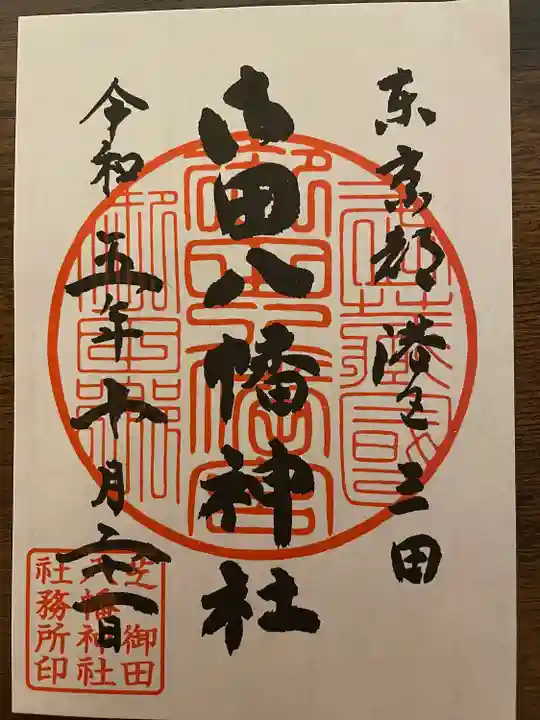 东京都港区三田
御田八幡神社
令和五年十月二十一日
芝御田
八幡神社
社務所印